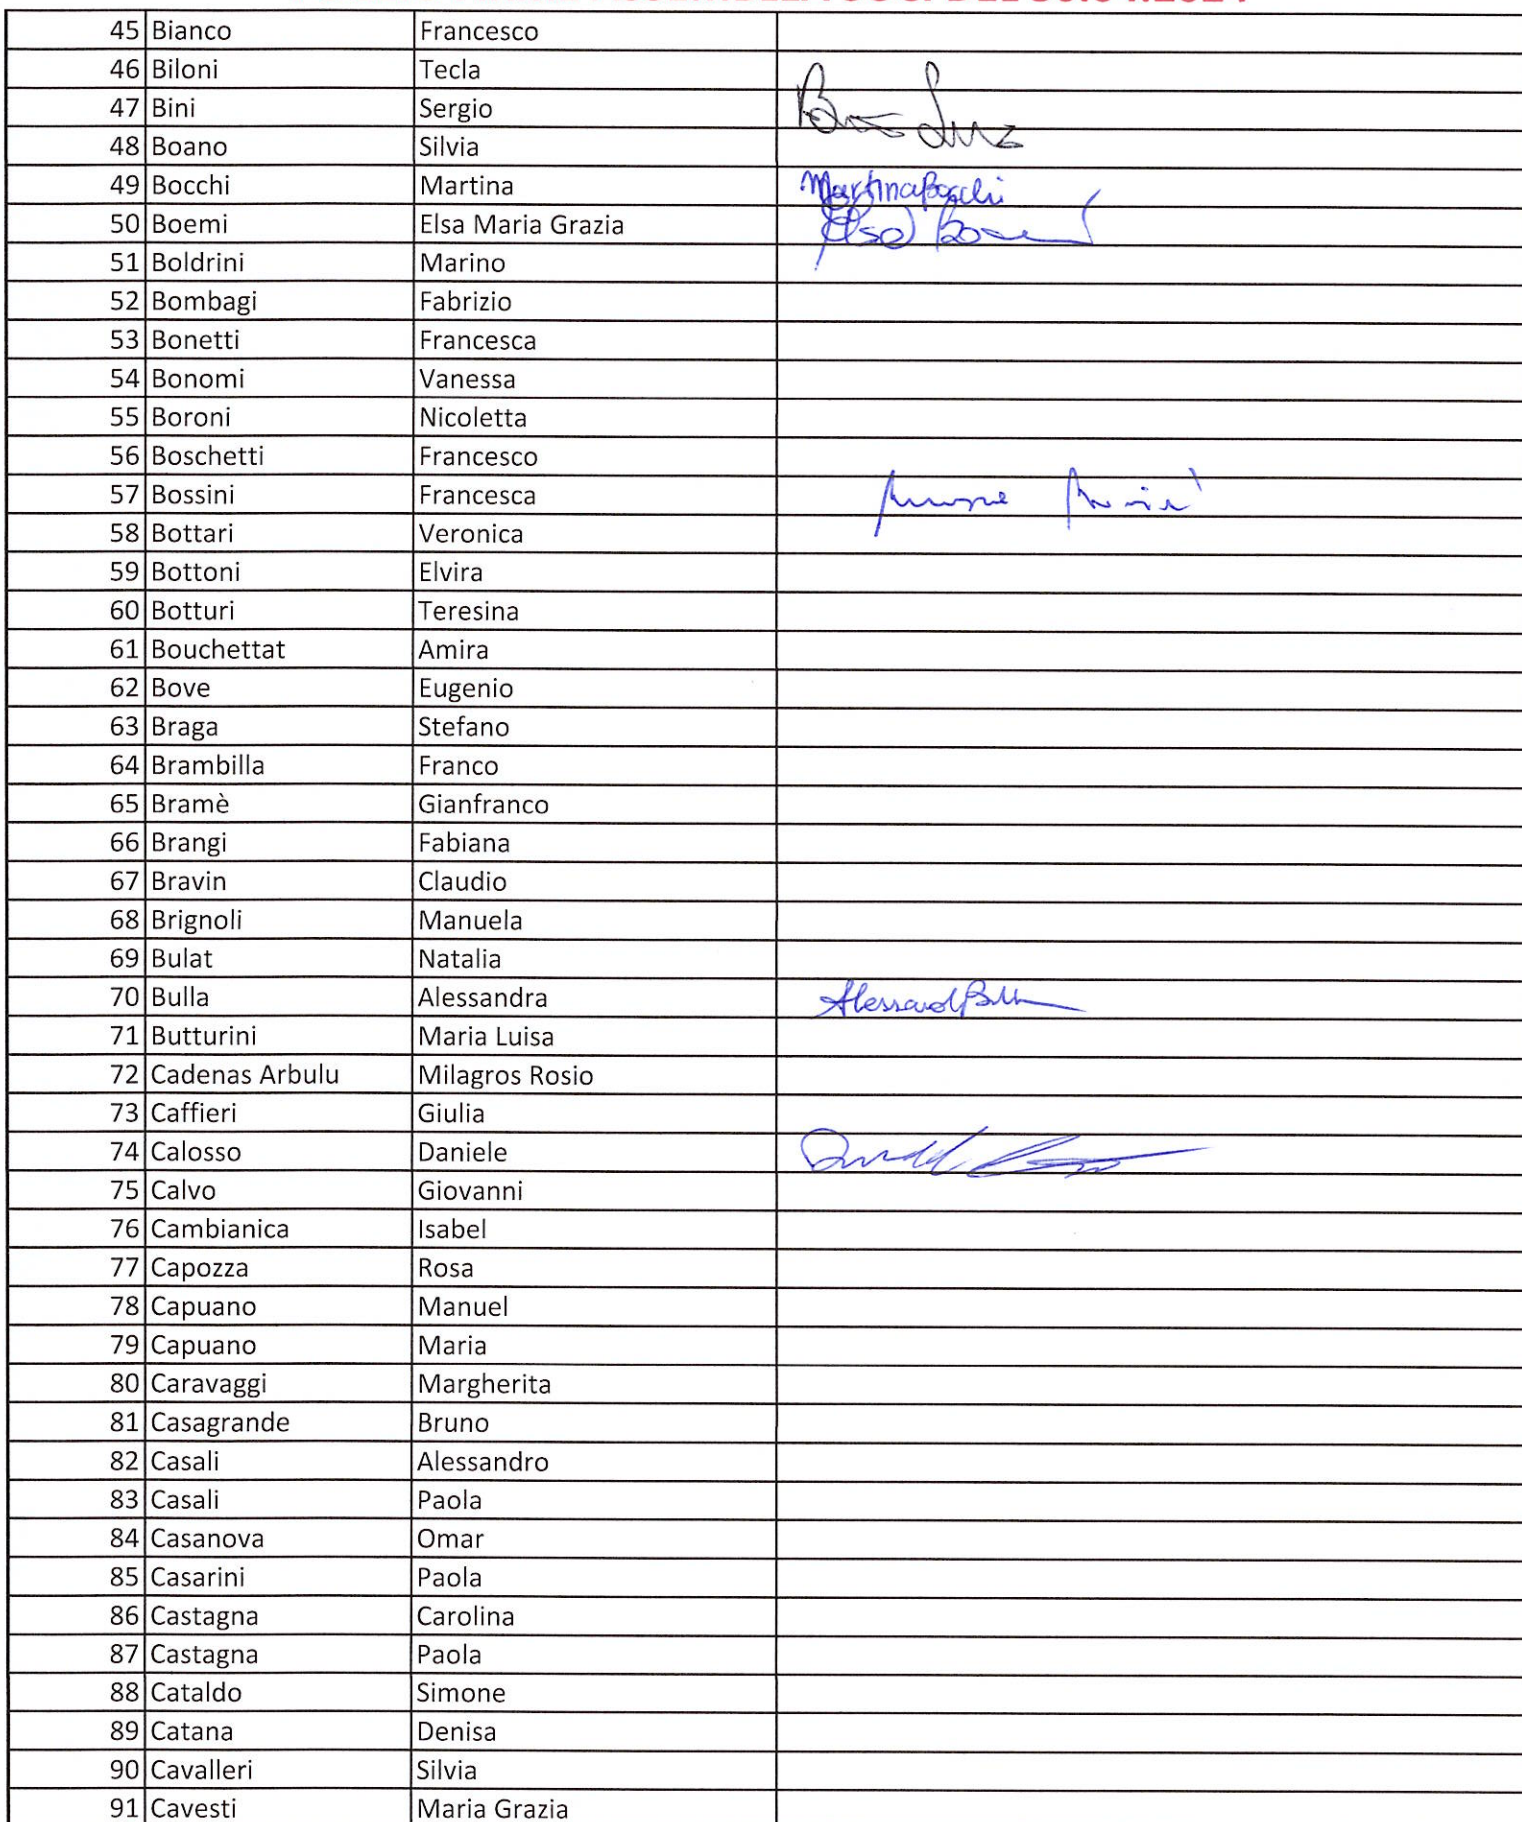 45 Bianco Francesco
46 Biloni Tecla
47 Bini Sergio
48 Boano Silvia
49 Bocchi Martina Martina Bocchi
50 Boemi Elsa Maria Grazia Elsa Boemi
51 Boldrini Marino
52 Bombagi Fabrizio
53 Bonetti Francesca
54 Bonomi Vanessa
55 Boroni Nicoletta
56 Boschetti Francesco
57 Bossini Francesca
58 Bottari Veronica
59 Bottoni Elvira
60 Botturi Teresina
61 Bouchettat Amira
62 Bove Eugenio
63 Braga Stefano
64 Brambilla Franco
65 Bramè Gianfranco
66 Brangi Fabiana
67 Bravin Claudio
68 Brignoli Manuela
69 Bulat Natalia
70 Bulla Alessandra
71 Butturini Maria Luisa
72 Cadenas Arbulu Milagros Rosio
73 Caffieri Giulia
74 Calosso Daniele
75 Calvo Giovanni
76 Cambianica Isabel
77 Capozza Rosa
78 Capuano Manuel
79 Capuano Maria
80 Caravaggi Margherita
81 Casagrande Bruno
82 Casali Alessandro
83 Casali Paola
84 Casanova Omar
85 Casarini Paola
86 Castagna Carolina
87 Castagna Paola
88 Cataldo Simone
89 Catana Denisa
90 Cavalleri Silvia
91 Cavesti Maria Grazia